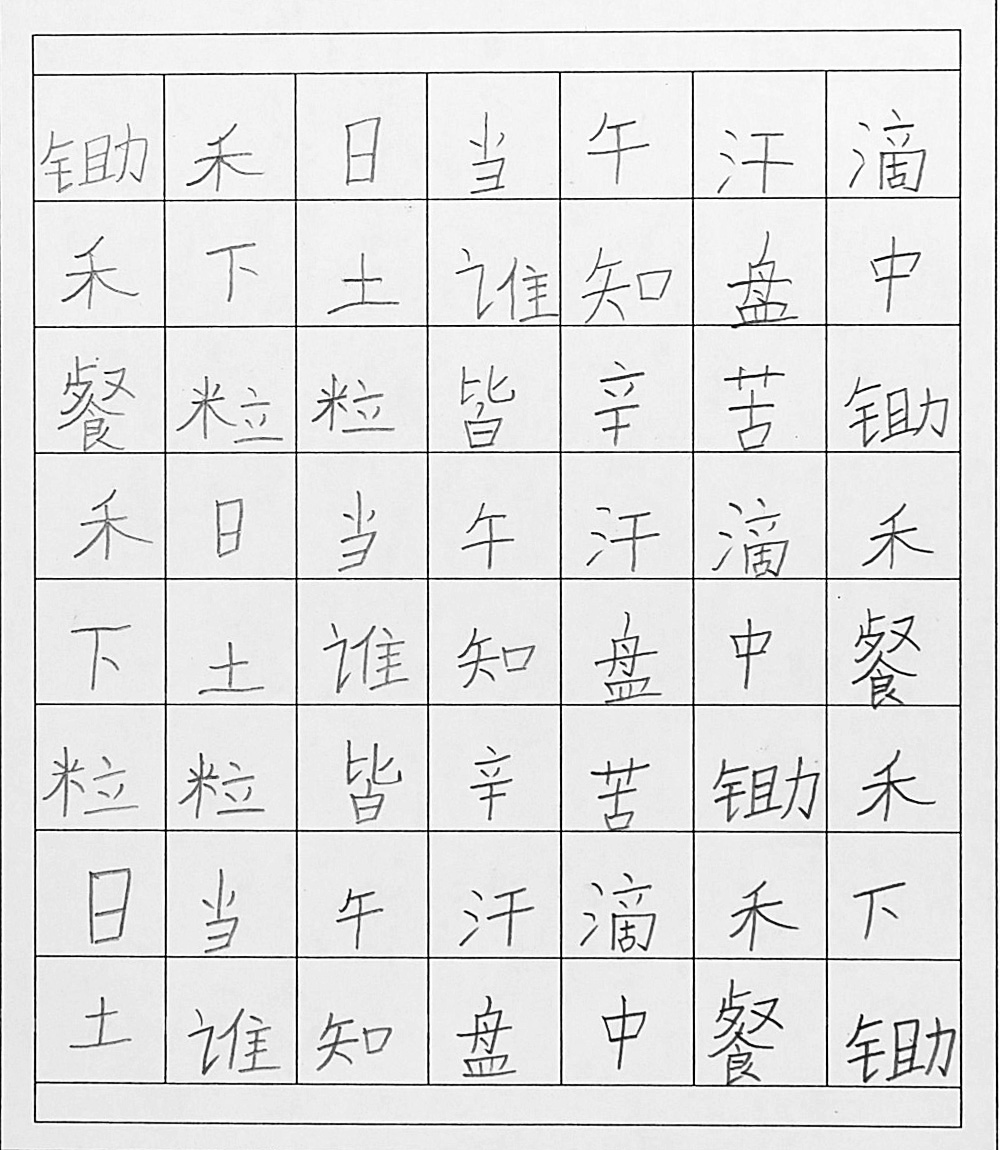 锄禾日当午汗滴
禾下土谁知盘中
餐粒粒皆辛苦锄
禾日当午汗滴禾
下土谁知盘中餐
粒粒皆辛苦锄禾
日当午汗滴禾下
土谁知盘中餐锄